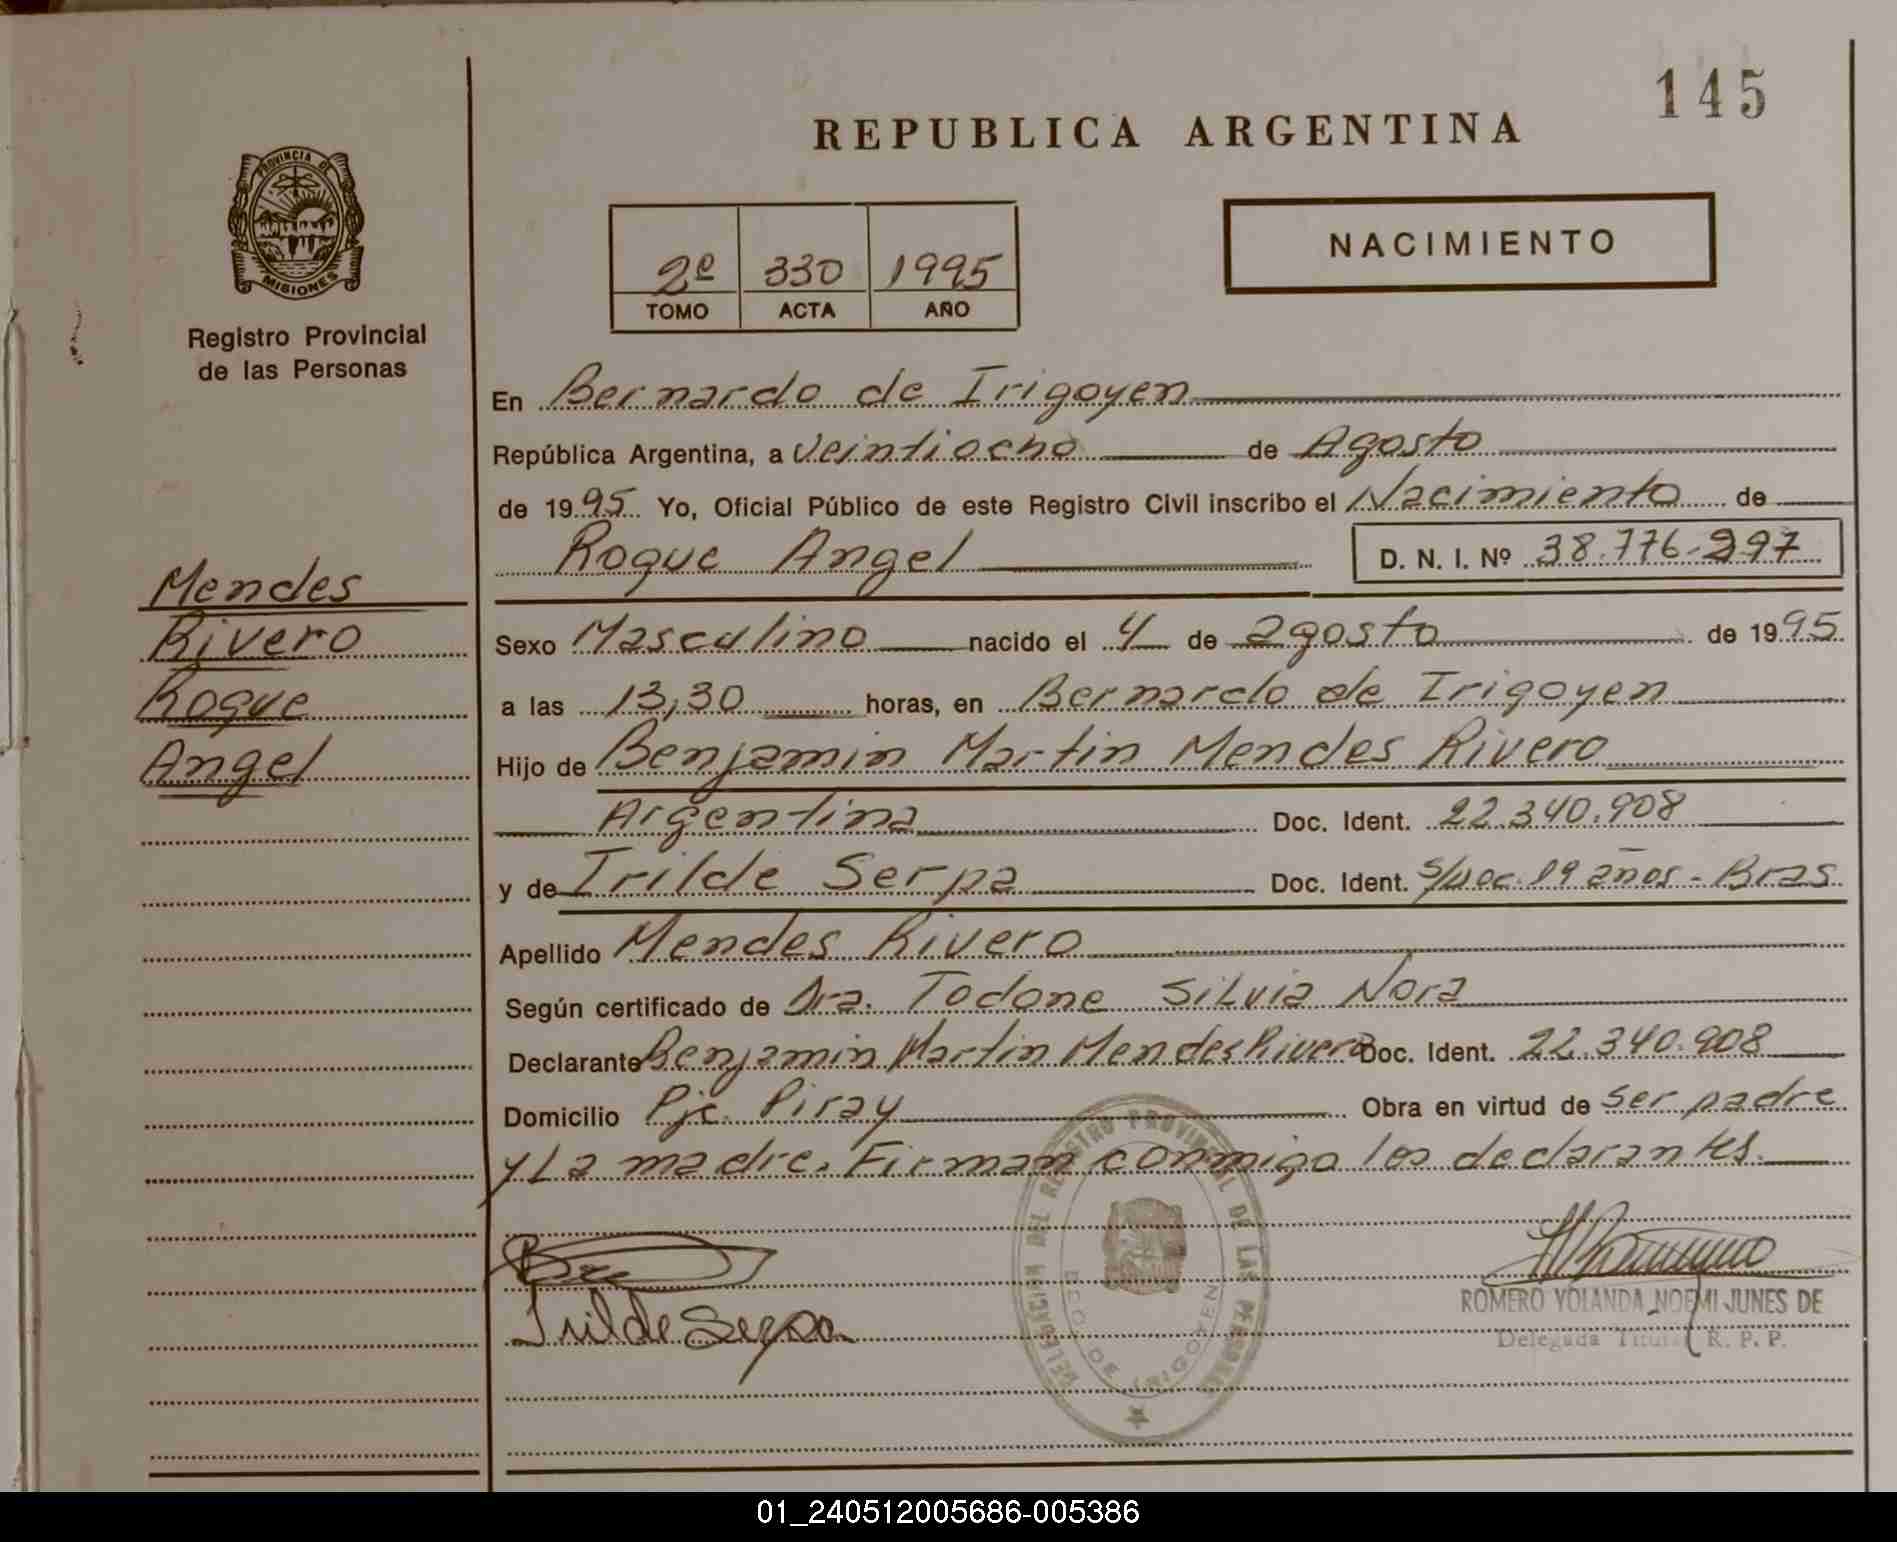 145
REPUBLICA ARGENTINA
PROVINCIA DE
MISIONES
Registro Provincial
de las Personas
2º 330 1995
TOMO ACTA AÑO
NACIMIENTO
En Bernardo de Irigoyen
República Argentina, a Veintiocho de Agosto
de 1995 Yo, Oficial Público de este Registro Civil inscribo el Nacimiento de
Roque Angel D. N. I. Nº 38.776.297
Mendes
Rivero
Roque
Angel
Sexo Masculino nacido el 4 de agosto de 1995
a las 13,30 horas, en Bernardo de Irigoyen
Hijo de Benjamin Martin Mendes Rivero
Argentina Doc. Ident. 22.340.908
y de Irilde Serpa Doc. Ident. S/Doc. 19 años - Bras
Apellido Mendes Rivero
Según certificado de Dra. Todone Silvia Nora
Declarante Benjamin Martin Mendes Rivero Doc. Ident. 22.340.908
Domicilio Pje. Piray Obra en virtud de ser padre
y La madre. Firman conmigo los declarantes.
Irilde Serpa
DELEGACION DEL REGISTRO PROVINCIAL DE LAS PERSONAS
BDO DE IRIGOYEN
ROMERO YOLANDA NOEMI JUNES DE
Delegada Titular R. P. P.
01_240512005686-005386